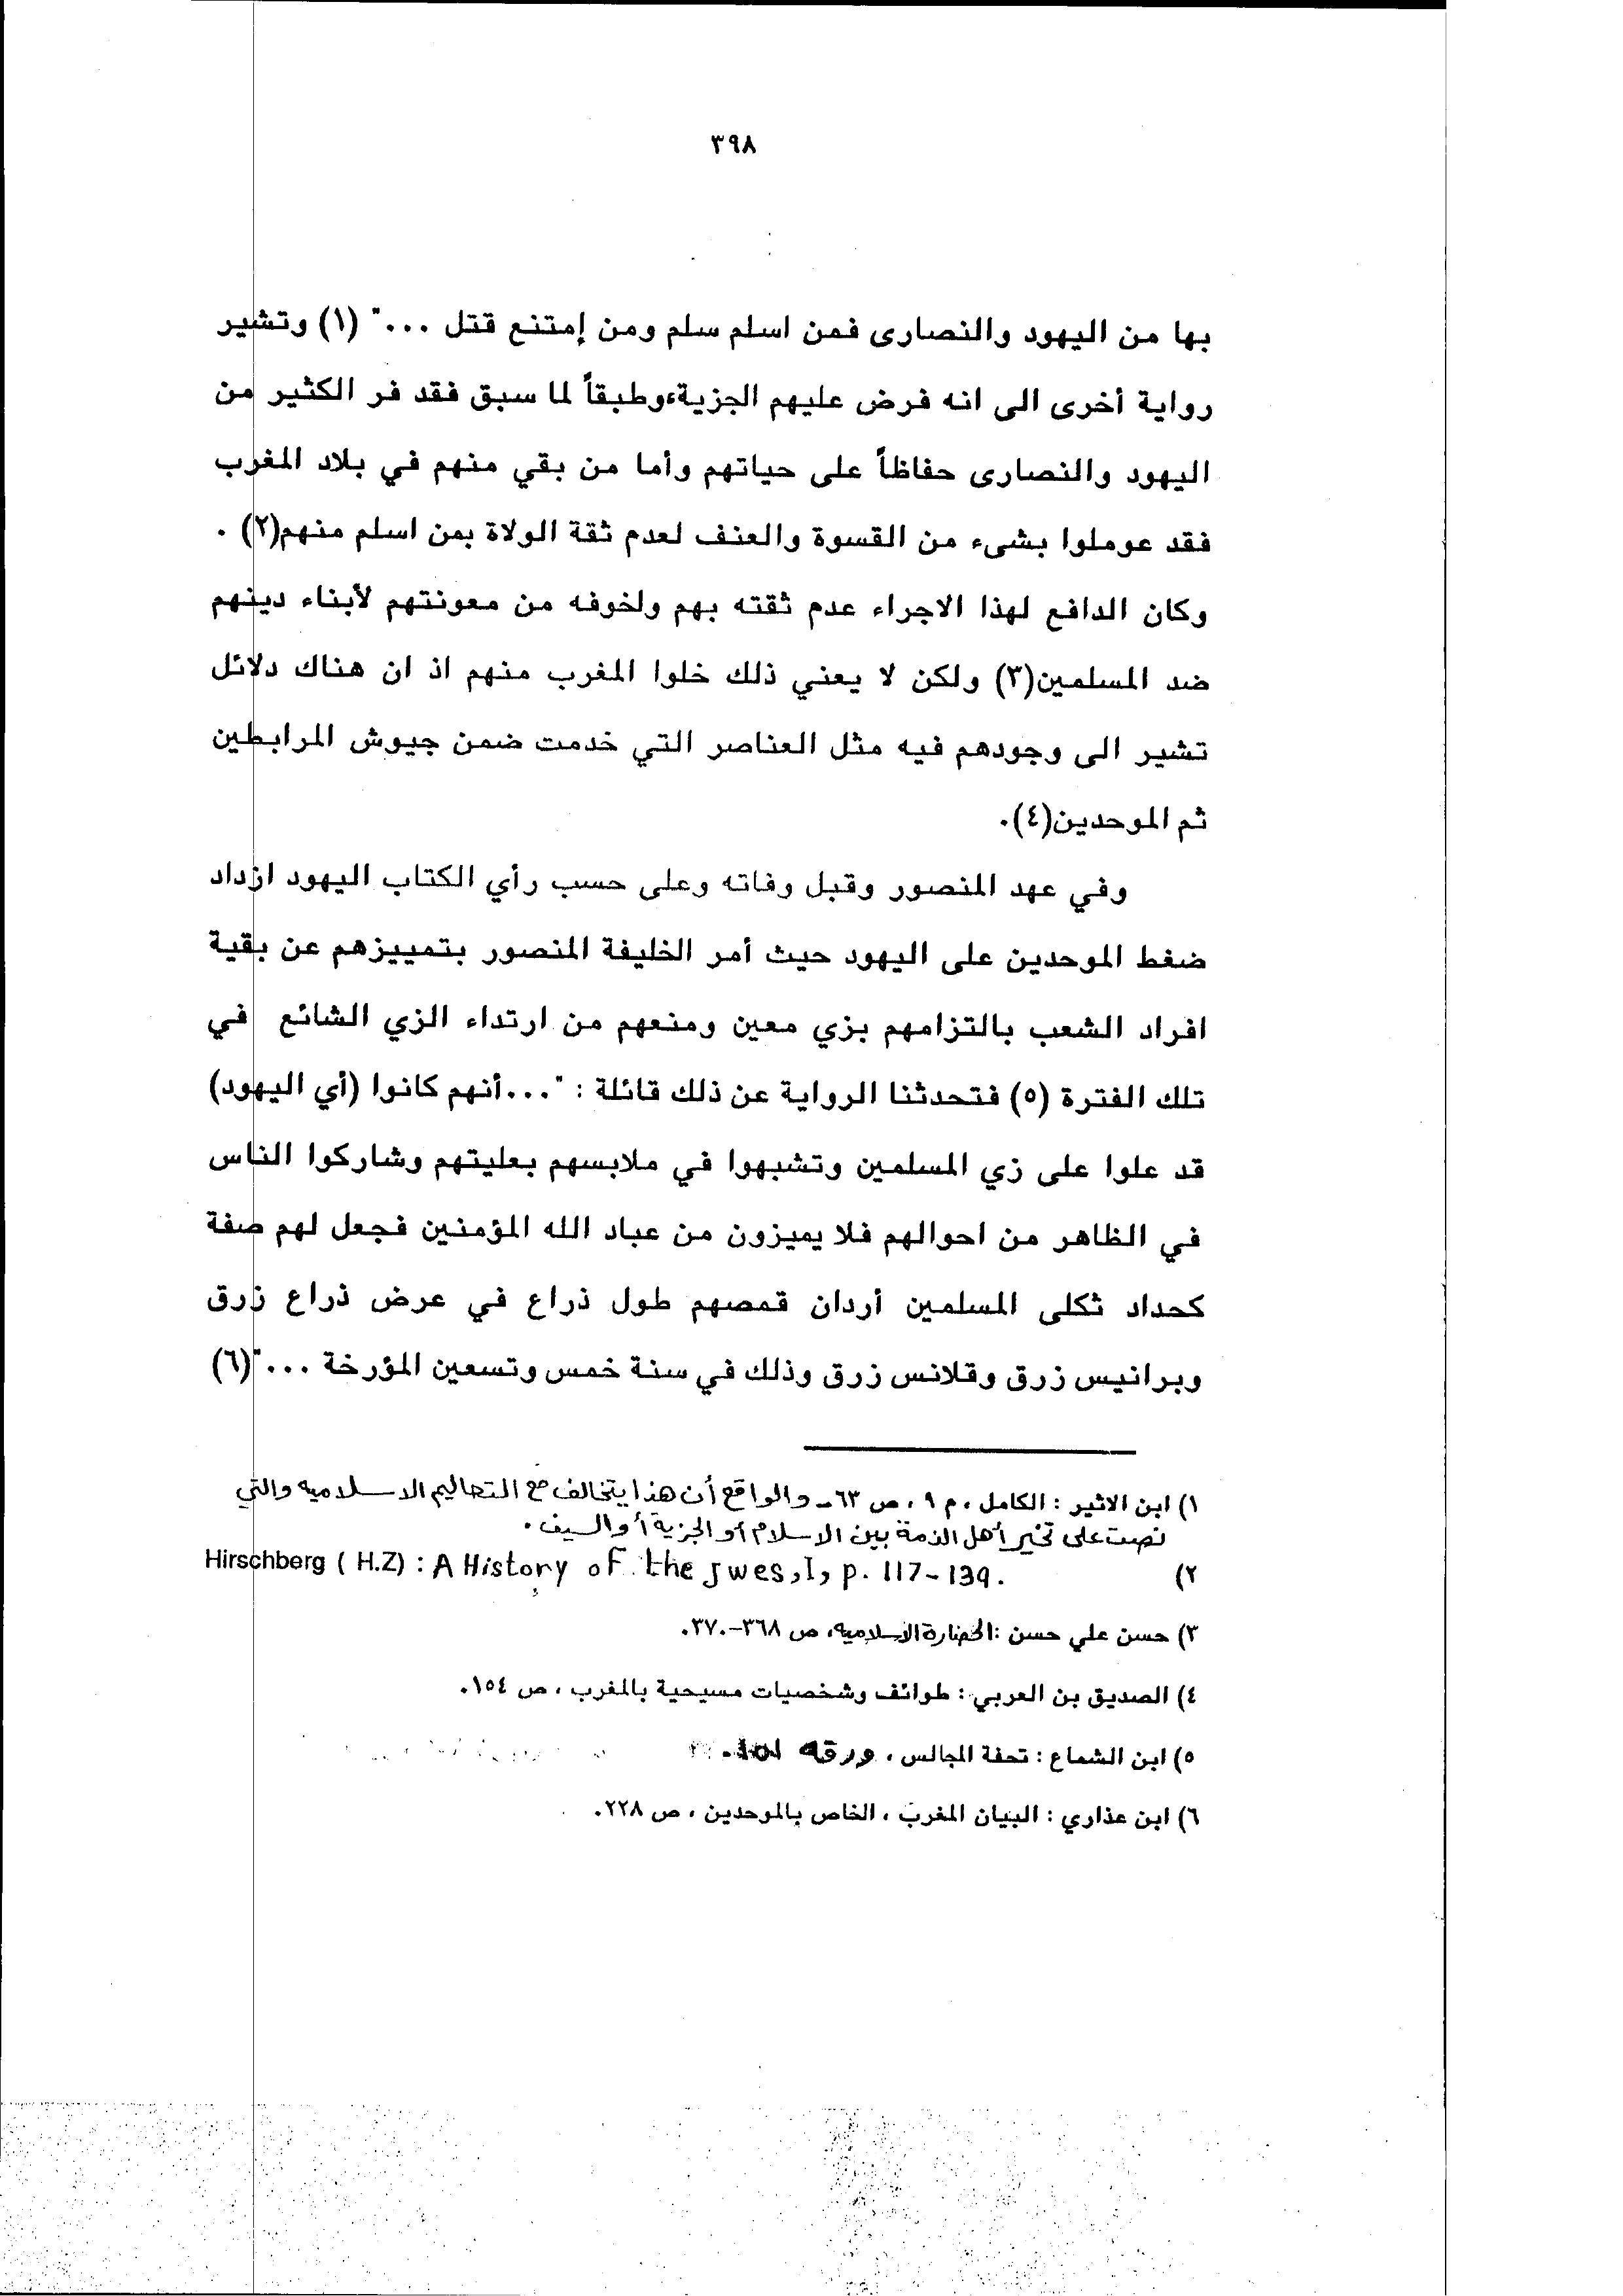 ٣٩٨
بها من اليهود والنصارى فمن اسلم سلم ومن إمتنع قتل ..." (١) وتشير
رواية أخرى الى انه فرض عليهم الجزية،وطبقاً لما سبق فقد فر الكثير من
اليهود والنصارى حفاظاً على حياتهم وأما من بقي منهم في بلاد المغرب
فقد عوملوا بشىء من القسوة والعنف لعدم ثقة الولاة بمن اسلم منهم(٢) .
وكان الدافع لهذا الاجراء عدم ثقته بهم ولخوفه من معونتهم لأبناء دينهم
ضد المسلمين(٣) ولكن لا يعني ذلك خلوا المغرب منهم اذ ان هناك دلائل
تشير الى وجودهم فيه مثل العناصر التي خدمت ضمن جيوش المرابطين
ثم الموحدين(٤).
وفي عهد المنصور وقبل وفاته وعلى حسب رأي الكتاب اليهود ازداد
ضغط الموحدين على اليهود حيث أمر الخليفة المنصور بتمييزهم عن بقية
افراد الشعب بالتزامهم بزي معين ومنعهم من ارتداء الزي الشائع في
تلك الفترة (٥) فتحدثنا الرواية عن ذلك قائلة : "...أنهم كانوا (أي اليهود)
قد علوا على زي المسلمين وتشبهوا في ملابسهم بعليتهم وشاركوا الناس
في الظاهر من احوالهم فلا يميزون من عباد الله المؤمنين فجعل لهم صفة
كحداد ثكلى المسلمين أردان قمصهم طول ذراع في عرض ذراع زرق
وبرانيس زرق وقلانس زرق وذلك في سنة خمس وتسعين المؤرخة ..."(٦)
١) ابن الاثير : الكامل ، م ٩ ، ص ٦٣ـ والواقع أن هذا يتخالف مع التعاليم الاسلاميه والتي
نصت على تخير أهل الذمة بين الاسلام أو الجزية أو السيف .
٢) Hirschberg ( H.Z) : A History of the Jwes, I, p. 117-139.
٣) حسن علي حسن :الحضارة الاسلاميه، ص ٣٦٨-٣٧٠.
٤) الصديق بن العربي : طوائف وشخصيات مسيحية بالمغرب ، ص ١٥٤.
٥) ابن الشماع : تحفة المجالس ، ورقه
٦) ابن عذاري : البيان المغرب ، الخاص بالموحدين ، ص ٢٢٨.